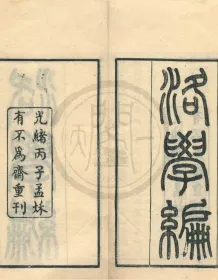 洛學編
光緒丙子孟秌
有不爲齋重刊